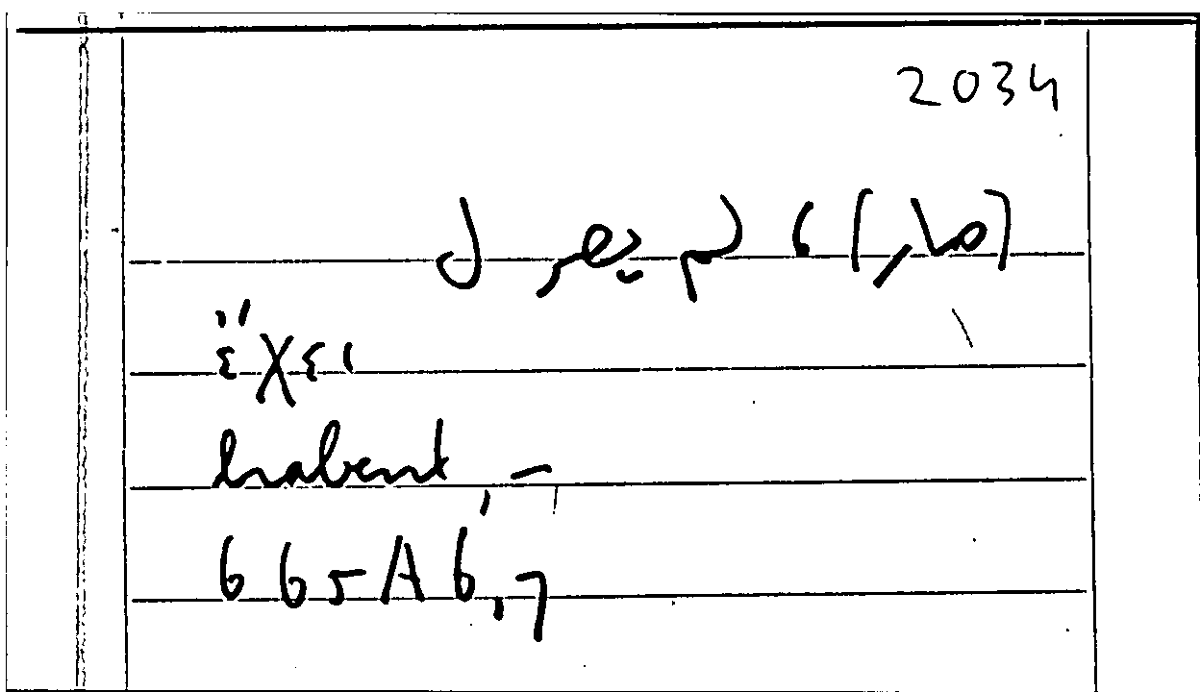 2034
(صار) ، لم يصر ل
ἔχει
habent, –
665A6,7